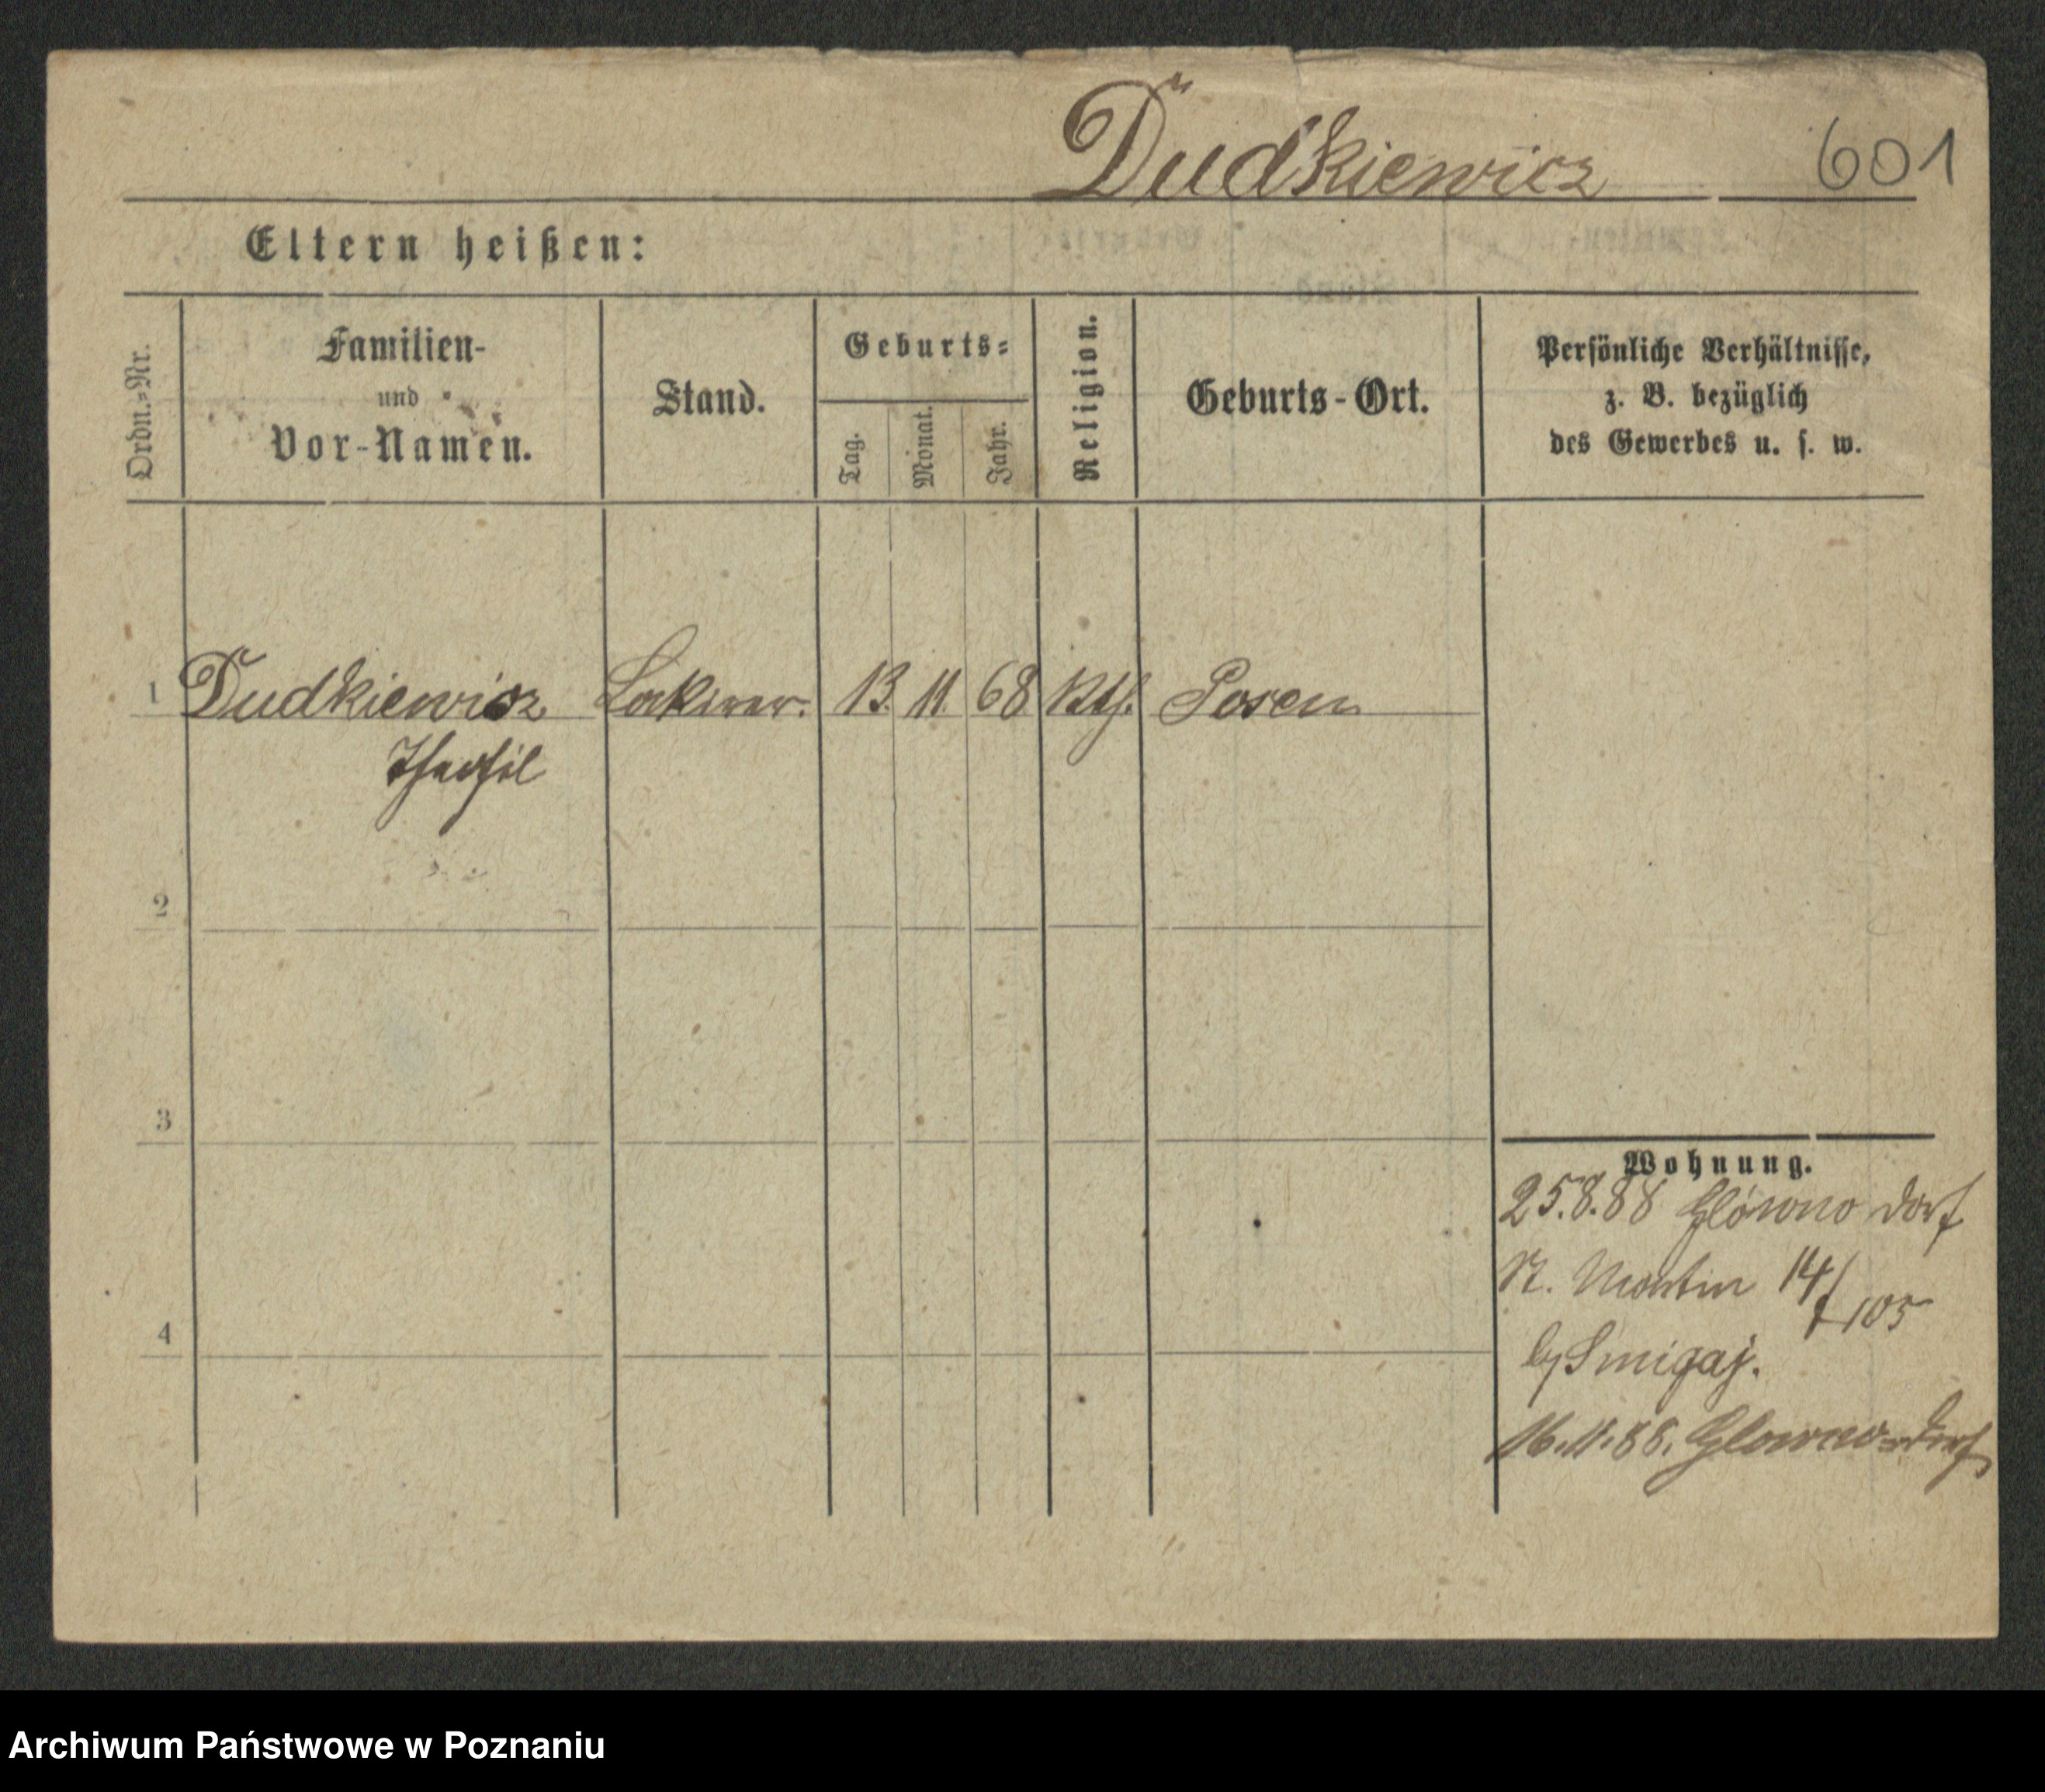 Dudkiewicz 601
Eltern heißen:
Ordn.-Nr.
Familien-
und
Vor-Namen.
Stand.
Geburts-
Tag.
Monat.
Jahr.
Religion.
Geburts-Ort.
Persönliche Verhältnisse,
z. B. bezüglich
des Gewerbes u. s. w.
1 Dudkiewicz 13. 11. 68 Kth. Posen
Theofil
2
3
4
Wohnung.
25.8.88 Glówno Dorf
St. Martin 14/105
b/ Smigaj.
16.11.88. Glowno-Dorf
Archiwum Państwowe w Poznaniu